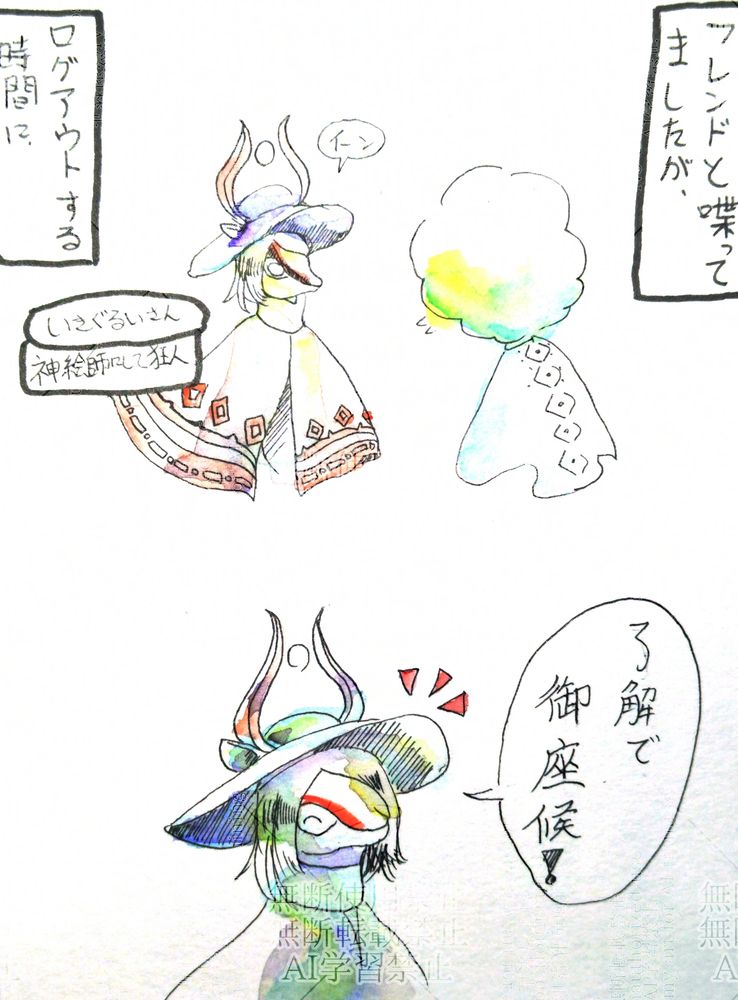 フレンドと喋って
ましたが、
ログアウトする
時間に、
イーン
いきぐるいさん
神絵師にして狂人
了解で
御座候!
無断使用禁止
無断転載禁止
AI学習禁止